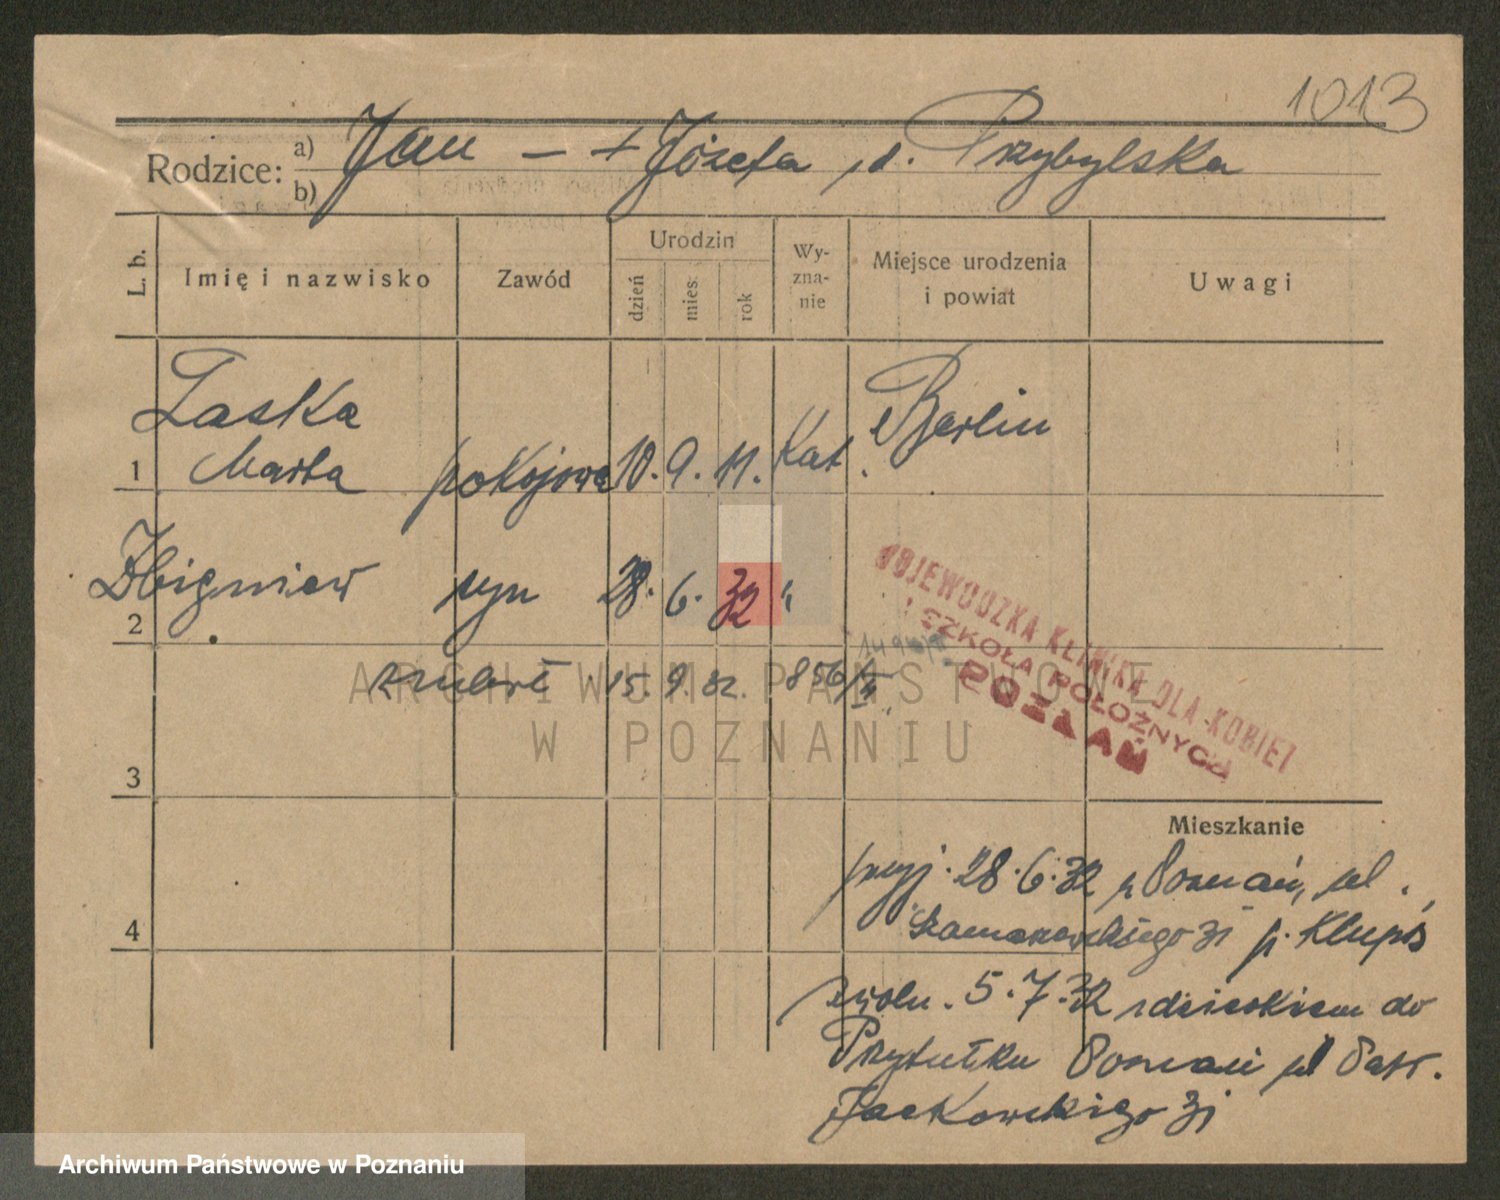 1013
Rodzice: a) b) Jan — + Józefa z d. Przybylska
L. b. Imię i nazwisko Zawód Urodzin dzień mies. rok Wy-zna-nie Miejsce urodzenia i powiat Uwagi
Laska
1 Marta pokojowa 10. 9. 11. Kat. Berlin
2 Zbigniew syn 28. 6. 32 "
zmarł 15. 9. 32. 856/
WOJEWÓDZKA KLINIKA DLA KOBIET
I SZKOŁA POŁOŻNYCH
POZNAŃ
ARCHIWUM PAŃSTWOWE
W POZNANIU
3
Mieszkanie
4
przyj. 28.6.32 z Poznań, ul.
p. Klupś
zwoln. 5.7.32 z dzieckiem do
Przytułku Poznań ul Patr.
Jackowskiego
Archiwum Państwowe w Poznaniu